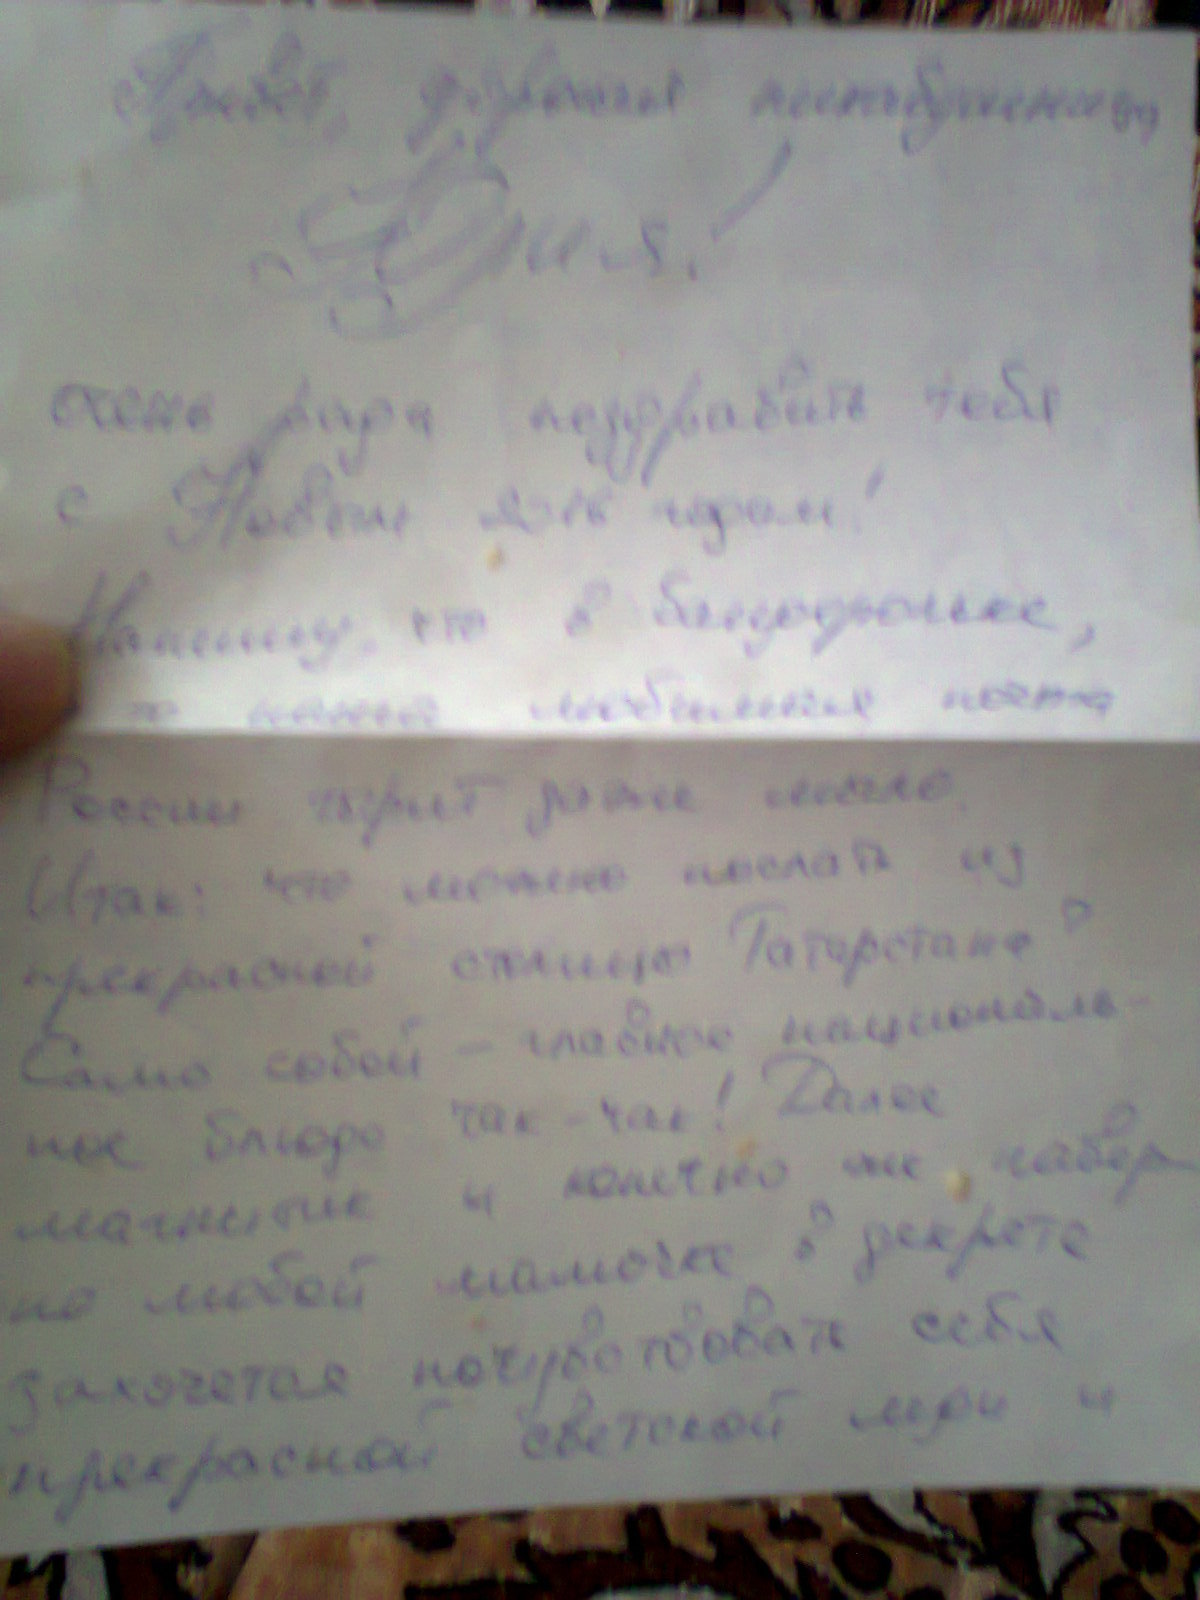 Привет, дорогая
Юля!
очень рада поздравить тебя
с Новым 2016 годом!
Напишу, что в
то наша любимая почта
России горит даже мыло.
Итак: что можно послать из
прекрасной столицы Татарстана?
Само собой - главное националь-
ное блюдо чак-чак! Далее
магнитик и конечно же навер
но любой мамочке в декрете
захочется почувствовать себя
прекрасной светской леди и